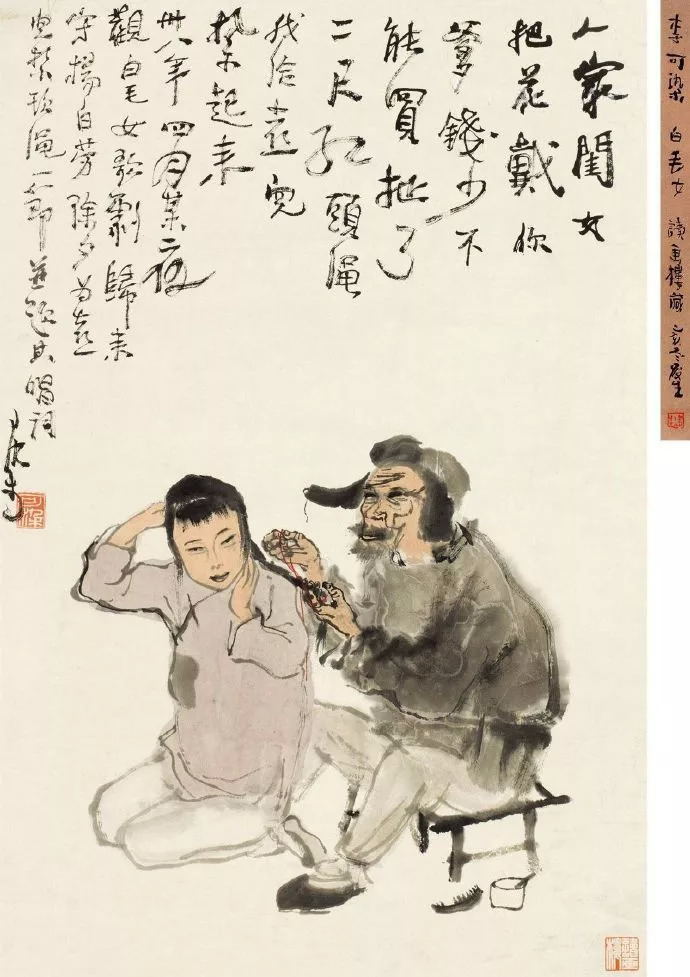 人家閨女
把花戴你
爹錢少不
能買扯了
二尺紅頭繩
我給喜兒
紮起來
卅八年四月夜
觀白毛女歌劇歸来
寫楊白勞除夕為喜
兒紮頭繩一節並題其唱詞
可染
可染
李可染 白毛女 讀畫樓藏